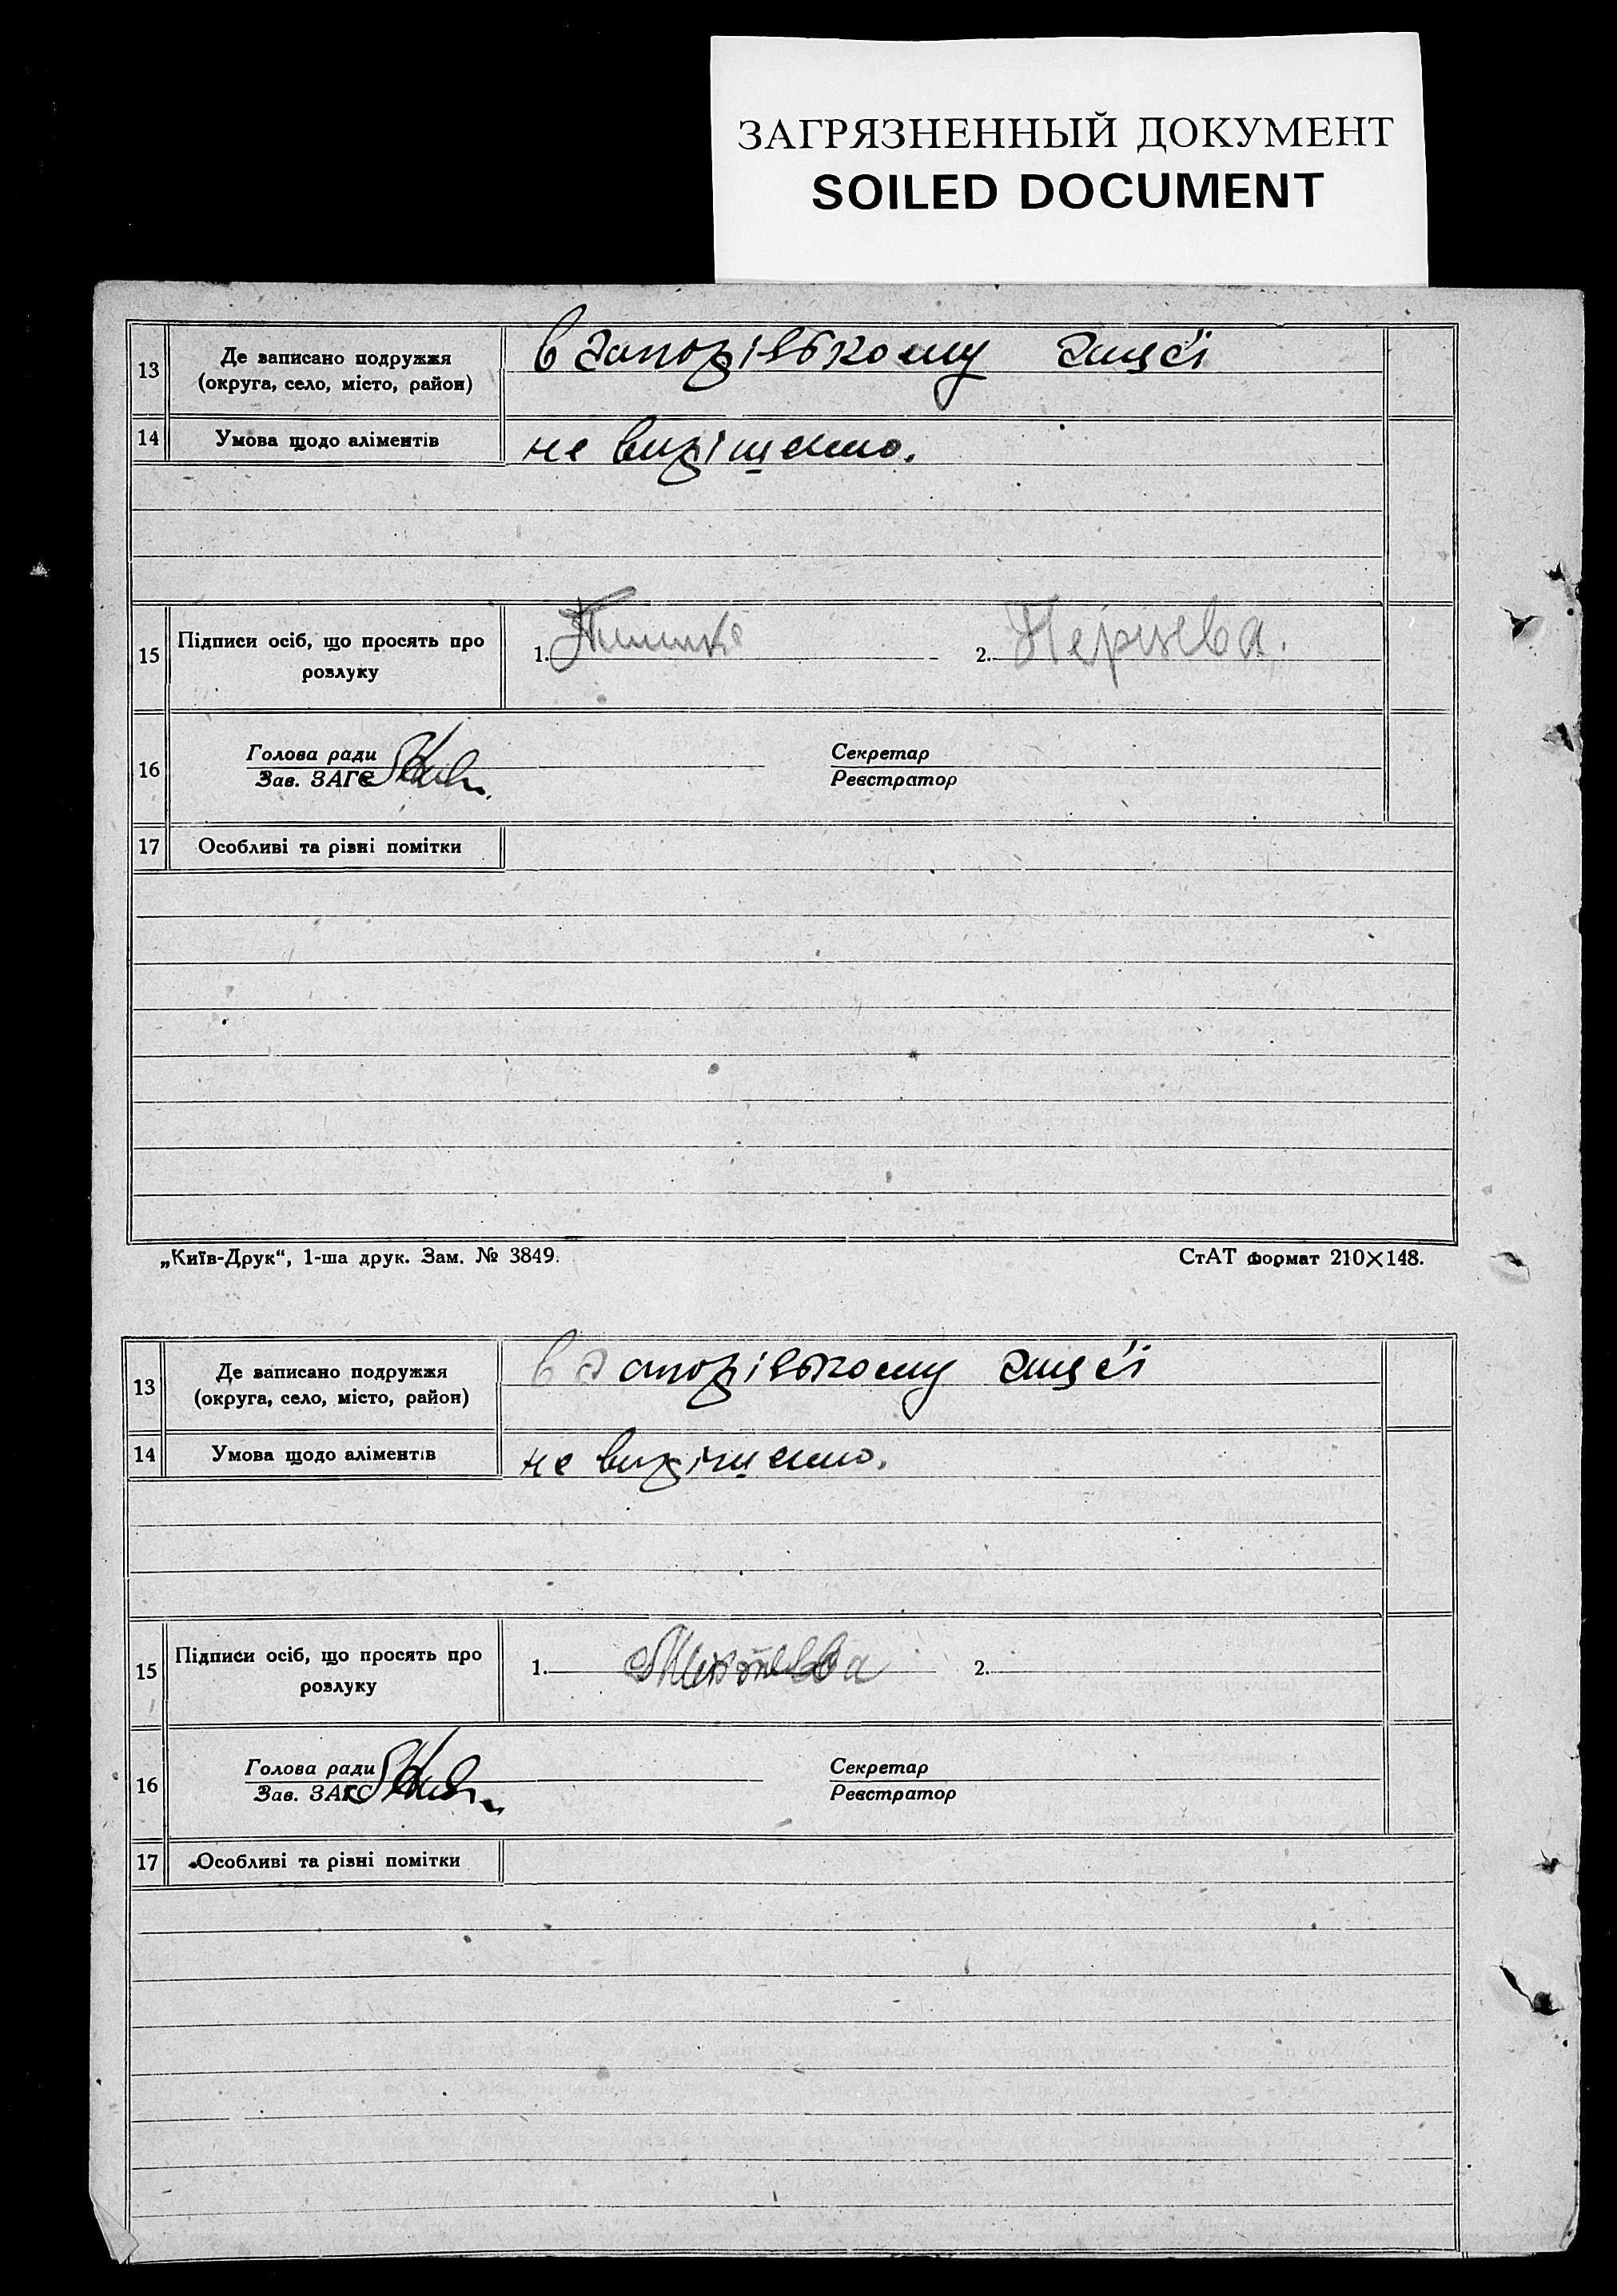 ЗАГРЯЗНЕННЫЙ ДОКУМЕНТ
SOILED DOCUMENT
13 Де записано подружжя (округа, село, місто, район) в запорізькому
14 Умова щодо аліментів не вирішено.
15 Підписи осіб, що просять про розлуку 1. 2.
16 Голова ради Зав. ЗАГС Секретар Реєстратор
17 Особливі та різні помітки
„Київ-Друк“, 1-ша друк. Зам. № 3849. СтАТ формат 210×148.
13 Де записано подружжя (округа, село, місто, район) в запорізькому
14 Умова щодо аліментів не вирішено.
15 Підписи осіб, що просять про розлуку 1. 2.
16 Голова ради Зав. ЗАГС Секретар Реєстратор
17 Особливі та різні помітки